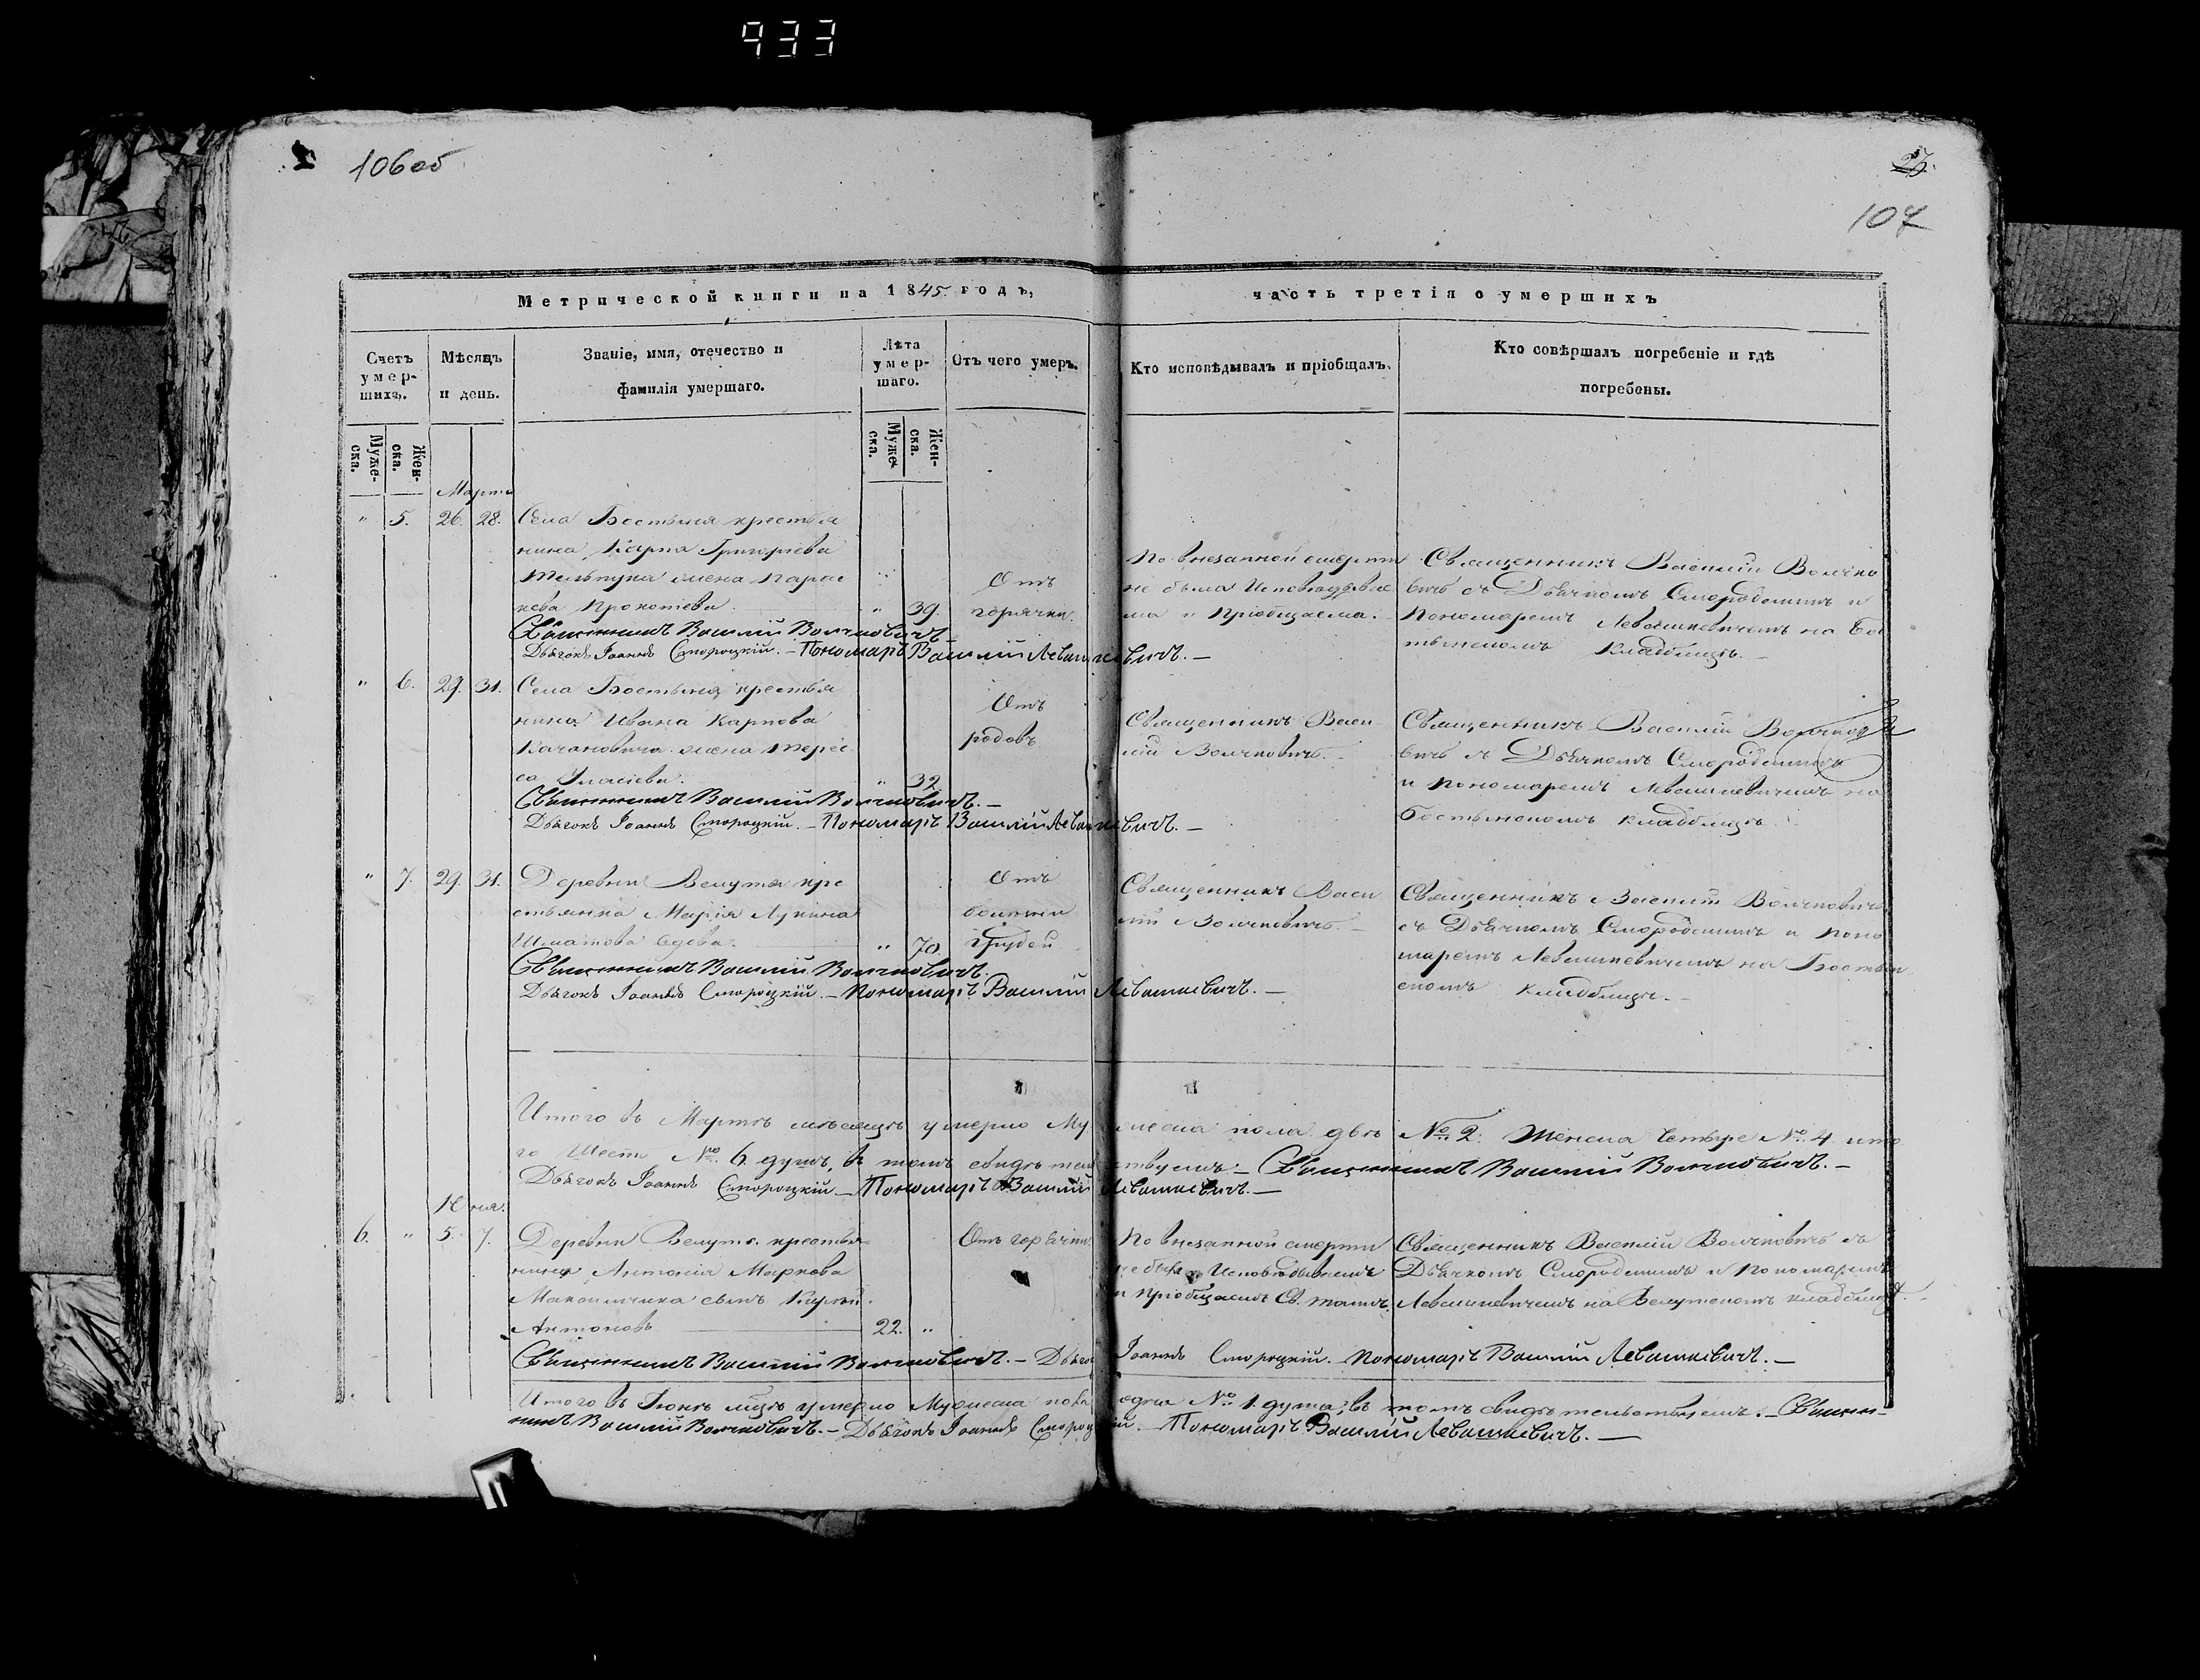 933
106об
23.
107
Метрической книги на 1845. годъ,
часть третія о умершихъ
Счетъ умер-шихъ.
Мѣсяцъ и день.
Званіе, имя, отечество и фамилія умершаго.
Лѣта умер-шаго.
Отъ чего умеръ.
Кто исповѣдывалъ и пріобщалъ.
Кто совѣршалъ погребеніе и гдѣ погребены.
Муже-ска.
Жен-ска.
Муже-ска.
Жен-ска.
Марта
" 5. 26. 28.
Села Бостыня крестья
нина Карпа Григорьева
жена Парас
кева Прокопіева.
" 39.
Отъ
горячки.
По внезапной смерти
не была Исповѣдыва
ма и Пріобщаема.
Священникъ Василій Волчко
вичъ съ Дьячкомъ Смородскимъ и
Пономаремъ Левашкевичемъ на Бо
стынскомъ Кладбищѣ.
Священникъ Василій Волчковичъ.
Дьячокъ Іоаннъ Смородскій. – Пономарь Василій Левашкевичъ. –
" 6. 29. 31.
Села Бостыня крестья
нина Ивана Карпова
Качановича жена Терес
са Уласіева.
" 32
Отъ
родовъ
Священникъ Васи
лій Волчковичъ. –
Священникъ Василій Волчко
вичъ съ Дьячкомъ Смородскимъ
и Пономаремъ Левашкевичемъ на
Бостынскомъ Кладбищѣ.
Священникъ Василій Волчковичъ. –
Дьячокъ Іоаннъ Смородскій. – Пономарь Василій Левашкевичъ. –
" 7. 29. 31.
Деревни Велута кре
стьянка Марія Лукина
Шматова вдова.
" 70
Отъ
болѣзни
грудей
Священникъ Васи
лій Волчковичъ. –
Священникъ Василій Волчковичъ
съ Дьячкомъ Смородскимъ и Поно
маремъ Левашкевичемъ на Бостын
скомъ Кладбищѣ. –
Священникъ Василій Волчковичъ.
Дьячокъ Іоаннъ Смородскій. – Пономарь Василій Левашкевичъ. –
Итого въ Мартѣ мѣсяцѣ умерло Мужеска пола двѣ № 2. Женска Четыре № 4 ито
го Шесть № 6 душъ, въ томъ свидѣтельствуемъ. – Священникъ Василій Волчковичъ. –
Дьячокъ Іоаннъ Смородскій – Пономарь Василій Левашкевичъ. –
Юня.
6. " 5. 7.
Деревни Велута крестья
нина Антонія Маркова
сынъ
Антоновъ
22. "
Отъ горячки
По внезапной смерти
не былъ Исповѣдываемъ
и пріобщаемъ Св. таинъ.
Священникъ Василій Волчковичъ съ
Дьячкомъ Смородскимъ и Пономаремъ
Левашкевичемъ на Велутскомъ кладбищѣ. –
Священникъ Василій Волчковичъ. – Дьячокъ Іоаннъ Смородскій. – Пономарь Василій Левашкевичъ. –
Итого въ Іюнѣ мцѣ умерло Мужеска пола одна № 1. душа, въ томъ свидѣтельствуемъ. – Священ-
никъ Василій Волчковичъ. – Дьячокъ Іоаннъ Смородскій. – Пономарь Василій Левашкевичъ. –